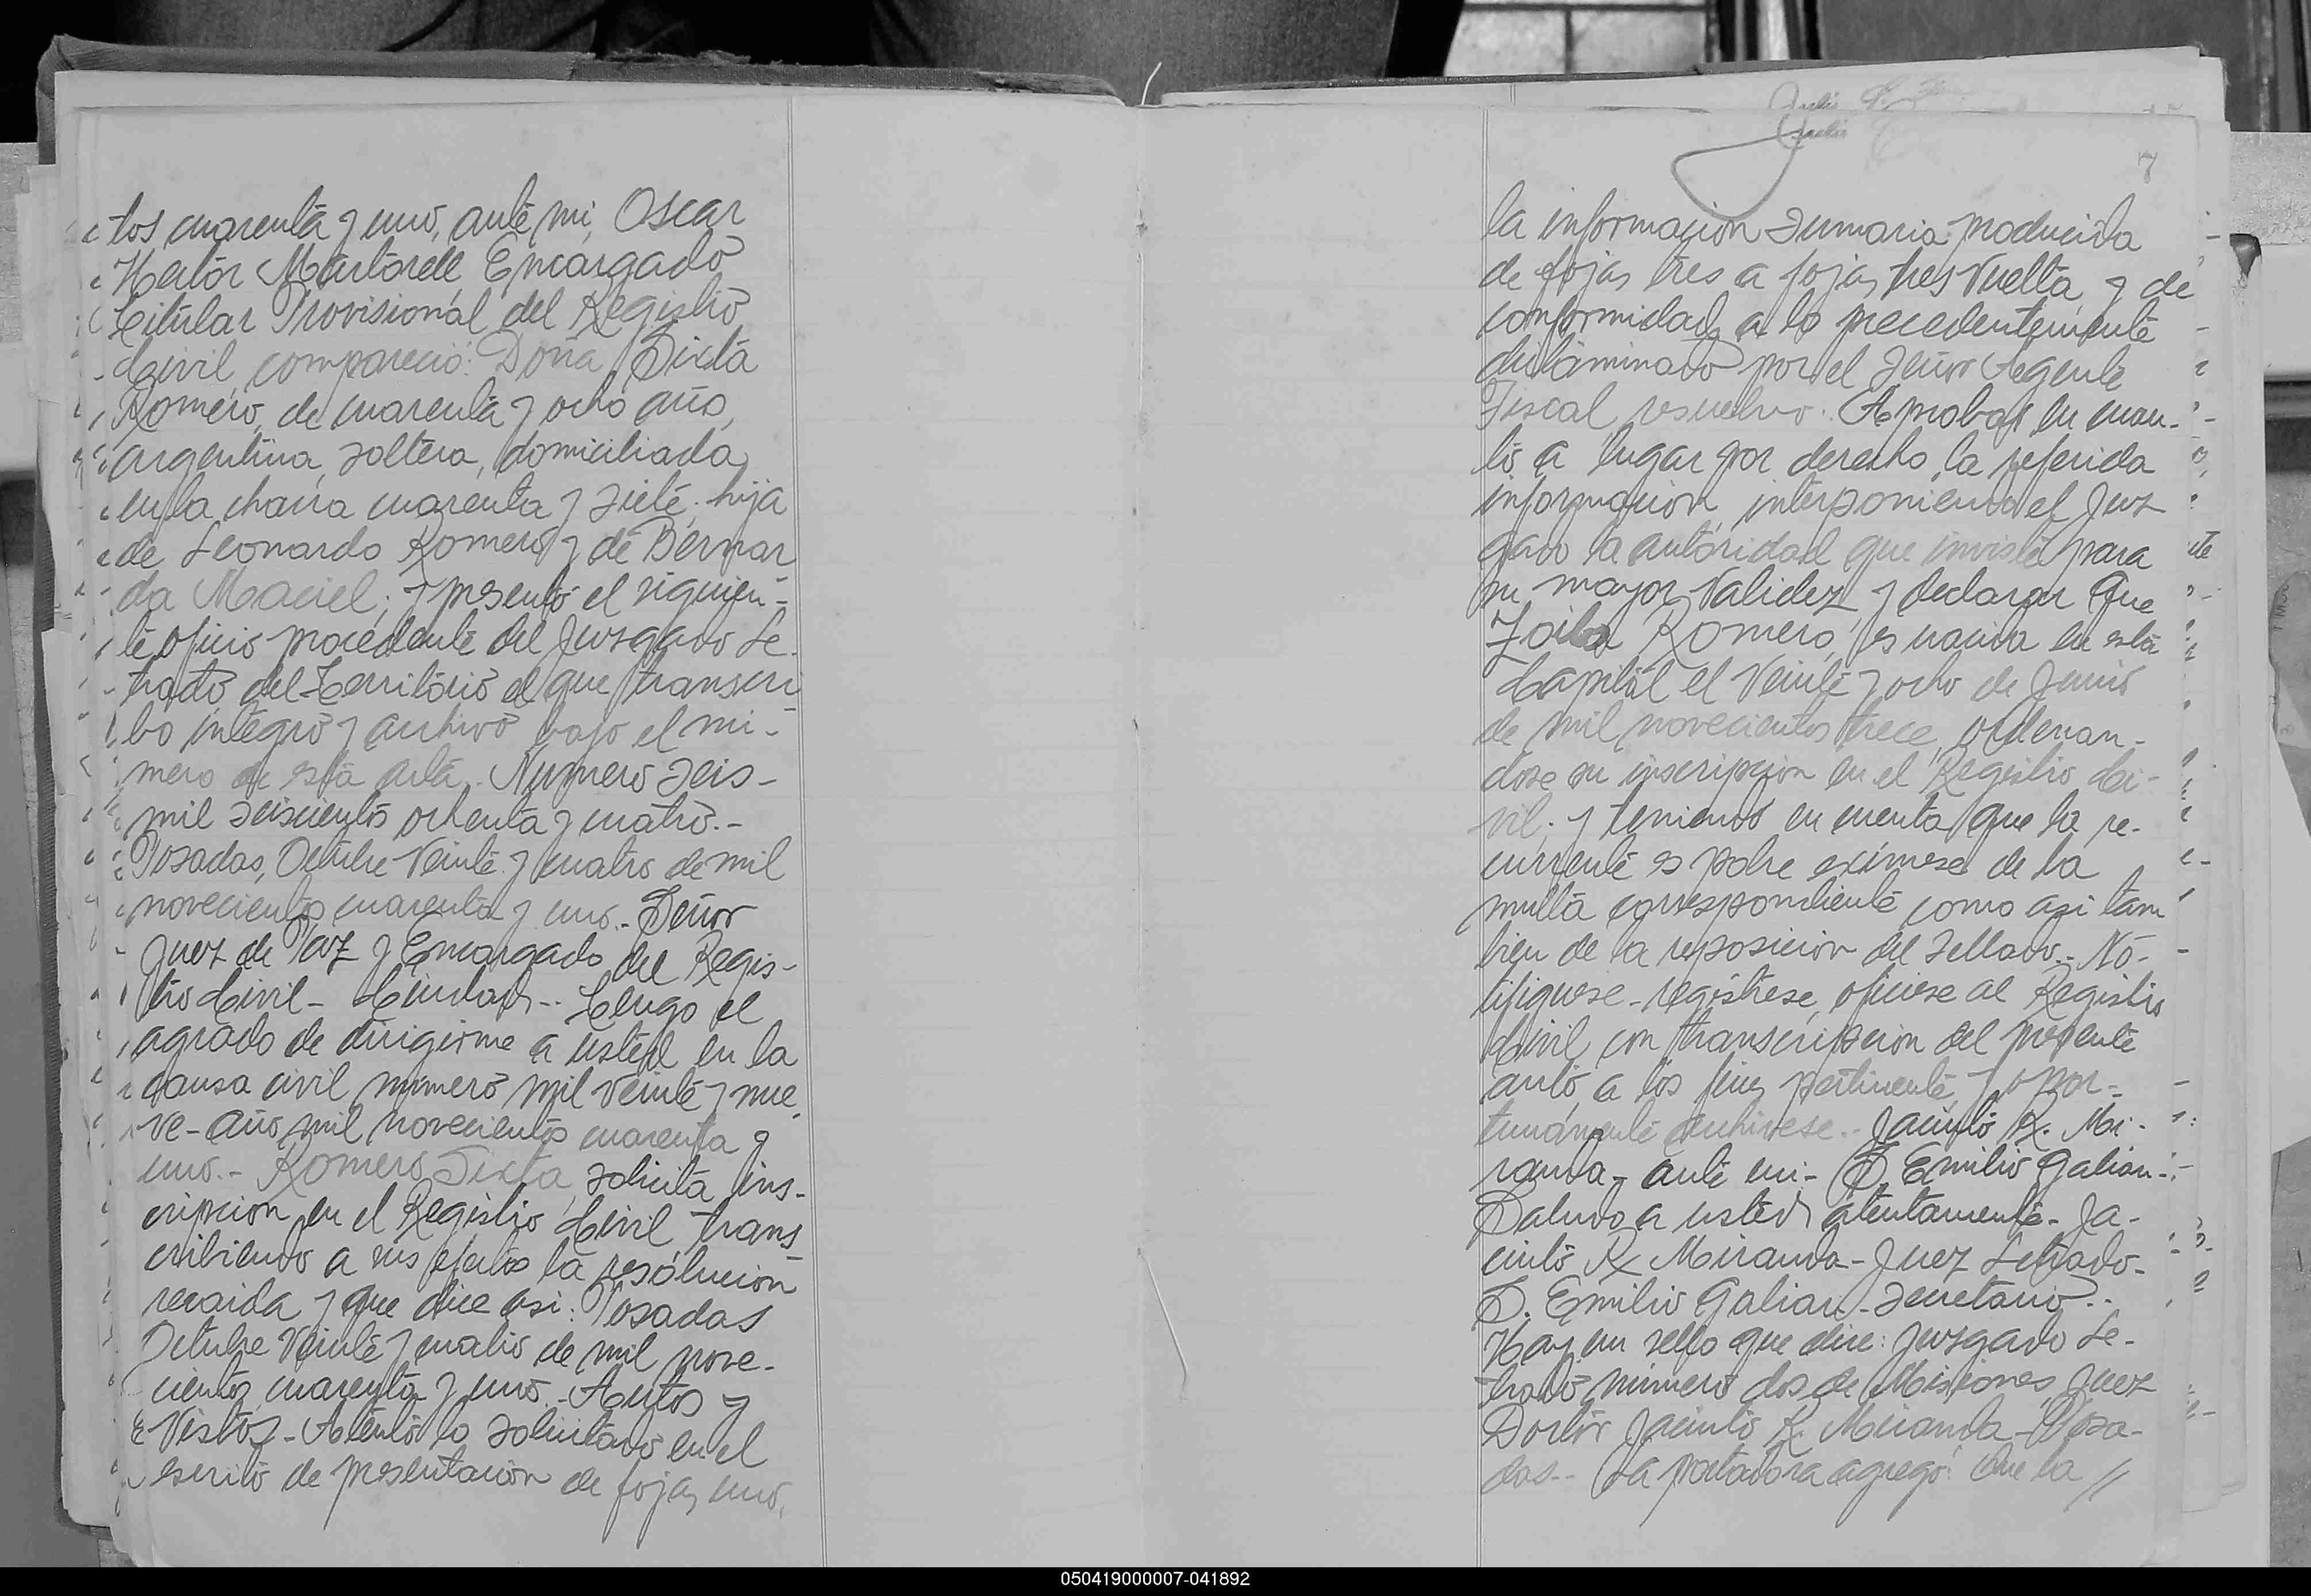 tos cuarenta y uno, ante mi, Oscar
Hector Martorell Encargado
Titular Provisional del Registro
Civil, compareció: Doña Sixta
Romero, de cuarenta y ocho año,
argentina, soltera, domiciliada
en la chacra cuarenta y siete, hija
de Leonardo Romero y de Bernar
da Maciel; y presentó el siguien-
te oficio procedente del Juzgado Le-
trado del Territorio el que transcri
bo integro y archivo bajo el nú-
mero de esta acta. Numero seis-
mil seiscientos ochenta y cuatro.-
Posadas, Octubre Veinte y cuatro de mil
novecientos cuarenta y uno.- Señor
Juez de Paz y Encargado del Regis-
tro Civil - Ciudad.- Tengo el
agrado de dirigirme a usted en la
causa civil número mil veinte y nue
ve - año mil novecientos cuarenta y
uno.- Romero Sixta, solicita ins-
cripcion en el Registro Civil, trans
cribiendo a sus efectos la resolucion
recaida y que dice asi: Posadas
Octubre Veinte y cuatro de mil nove-
cientos cuarenta y uno.- Autos y
Vistos - Atento lo solicitado en el
escrito de presentacion de fojas uno,
7
la informacion sumaria producida
de fojas tres a fojas tres vuelta y de
conformidad a lo precedentemente
dictaminado por el Señor Agente
Fiscal, resuelvo: Aprobar en cuan-
to a lugar por derecho la referida
informacion, interponiendo el Juz
gado la autoridad que inviste para
su mayor validez y declarar que
Zoila Romero, es nacida en esta
Capital el Veinte y ocho de Junio
de mil novecientos trece, ordenan-
dose su inscripcion en el Registro Ci-
vil; y teniendo en cuenta que la re-
currente es pobre exímese de la
multa correspondiente como asi tam
bien de la reposicion del sellado.- No-
tifiquese - registrese, oficiese al Registro
Civil con transcripcion del presente
auto, a los fines pertinente, y opor-
tunamente archivese.- Jacinto R. Mi-
randa - ante mi - D. Emilio Galian-
Saludo a usted atentamente - Ja-
cinto R. Miranda - Juez Letrado-
D. Emilio Galian - Secretario.-
Hay un sello que dice: Juzgado Le-
trado número dos de Misiones, Juez
Doctor Jacinto R. Miranda - Posa-
das.- La portadora agregó: Que la //
050419000007-041892